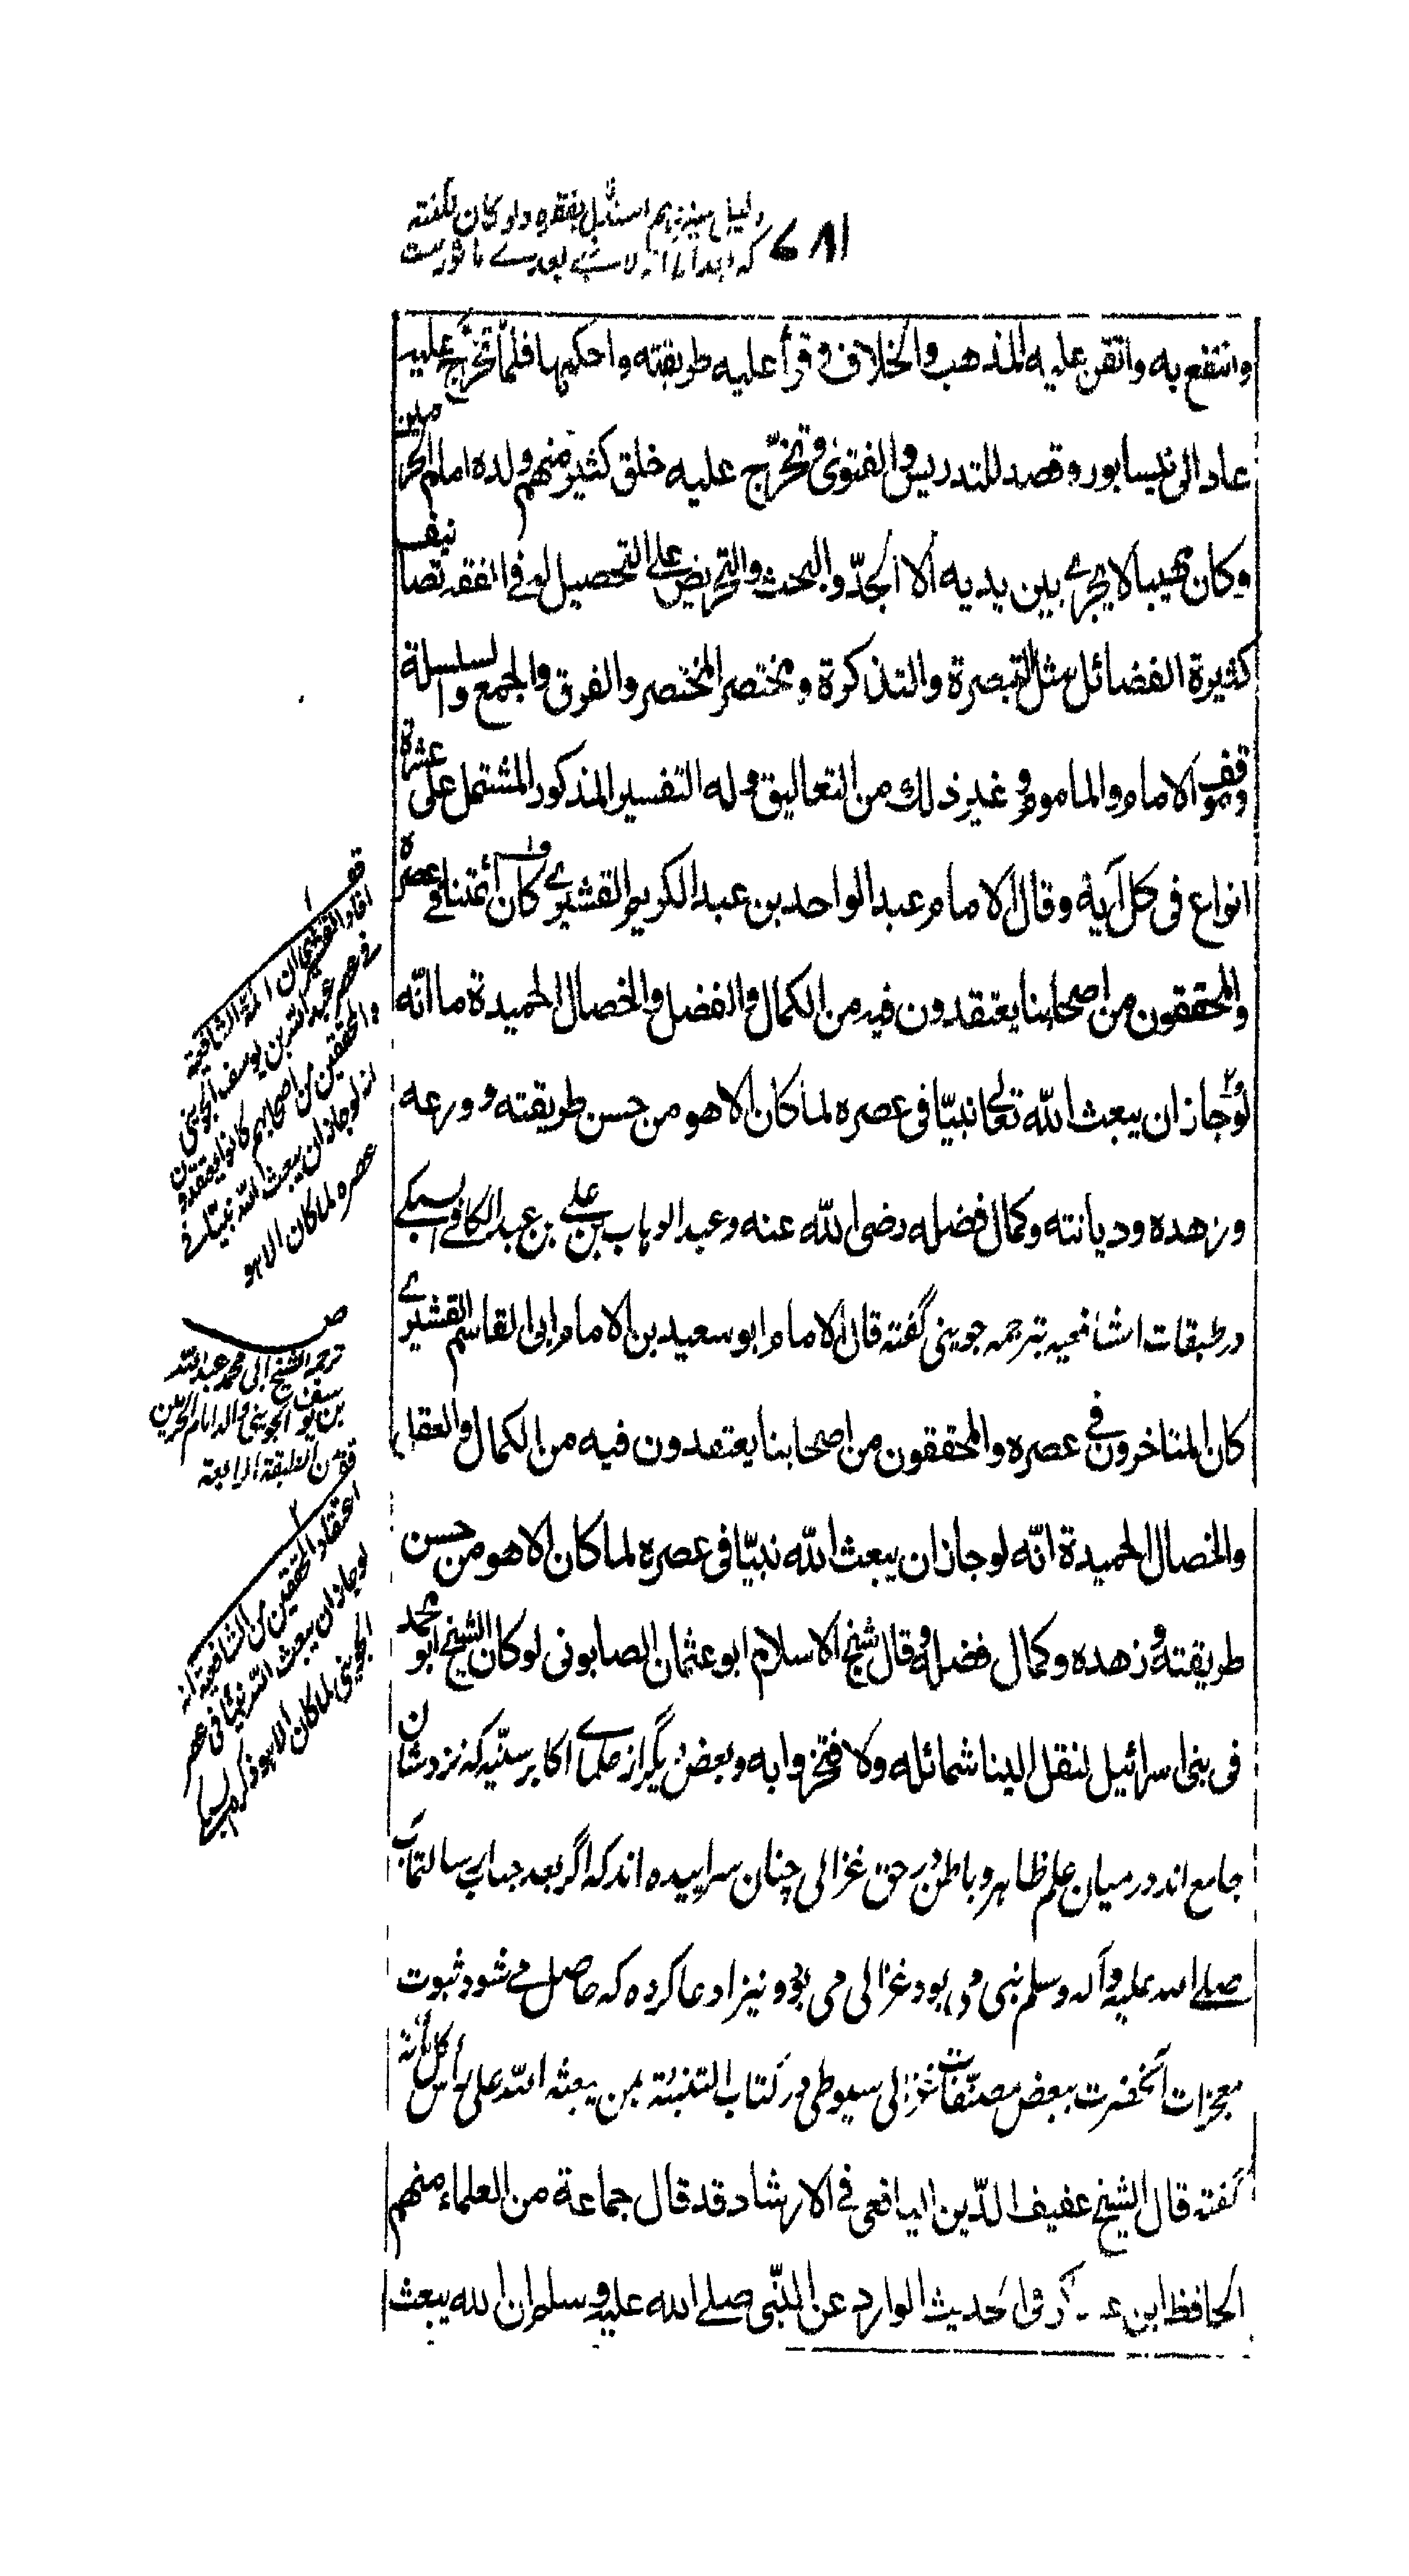 ۶۸۱
دلیل سیزدهم استدلال بفقره ولو کان
که ابتدای انه لا نبی بعدی ماثورست
وانتفع به واتقن علیه المذهب والخلاف وقرأ علیه طریقته واحکمها فلمّا تخرّج علیه
عاد الی نیسابور وقصد للتدریس والفتوی وتخرّج علیه خلق کثیر منهم ولده امام الحرمین
وکان مهیبا لا یجری بین یدیه الا الجدّ والبحث والتحریض علی التحصیل له فی الفقه تصانیف
کثیرة الفضائل مثل التبصرة والتذکرة ومختصر المختصر والفرق والجمع والسلسلة
وموقف الامام والماموم وغیر ذلك من التعالیق وله التفسیر المذکور المشتمل علی عشرة
انواع فی کل آیة وقال الامام عبد الواحد بن عبد الکریم القشیری کان ائمتنا فی عصره
والمحققون من اصحابنا یعتقدون فیه من الکمال والفضل والخصال الحمیدة ما انّه
لو جاز ان یبعث الله تعالی نبیّا فی عصره لما کان الا هو من حسن طریقته و ورعه
وزهده ودیانته وکمال فضله رضی الله عنه وعبد الوهاب بن علی بن عبد الکافی السبکی
در طبقات الشافعیه بترجمه جوینی گفته قال الامام ابو سعید بن الامام ابی القاسم القشیری
کان المتاخرون فی عصره والمحققون من اصحابنا یعتقدون فیه من الکمال والعقل
والخصال الحمیدة انّه لو جاز ان یبعث الله نبیّا فی عصره لما کان الا هو من حسن
طریقته وزهده وکمال فضله وقال شیخ الاسلام ابو عثمان الصابونی لو کان الشیخ ابو محمد
فی بنی اسرائیل لنقل الینا شمائله ولافتخروا به وبعض دیگر از علمای اکابر سنّیه که نزدشان
جامع اند درمیان علم ظاهر وباطن در حق غزالی چنان سراییده اند که اگر بعد جناب رسالتمآب
صلی الله علیه وآله وسلم نبی می بود غزالی می بود ونیز ادعا کرده که حاصل می شود ثبوت
معجزات آنحضرت ببعض مصنّفات غزالی سیوطی در کتاب التنبئة بمن یبعثه الله علی رأس کل مائة
گفته قال الشیخ عفیف الدّین الیافعی فی الارشاد قد قال جماعة من العلماء منهم
الحافظ ابن عساکر فی الحدیث الوارد عن النّبی صلی الله علیه وسلم ان الله یبعث
قف
۱
افاد القشیری ان ائمة الشافعیة
فی عصر عبد الله بن یوسف الجوینی
والمحققین من اصحابهم کانوا یعتقدون
انه لو جاز ان یبعث الله نبیّا فی
عصره لما کان الا هو
ص
ترجمة الشیخ ابی محمد عبد الله
بن یوسف الجوینی والد امام الحرمین
من الطبقة الرابعة
قف
۲
اعتقاد المحققین من الشافعیة انه
لو جاز ان یبعث الله نبیّا فی عصر
الجوینی لما کان الا هو